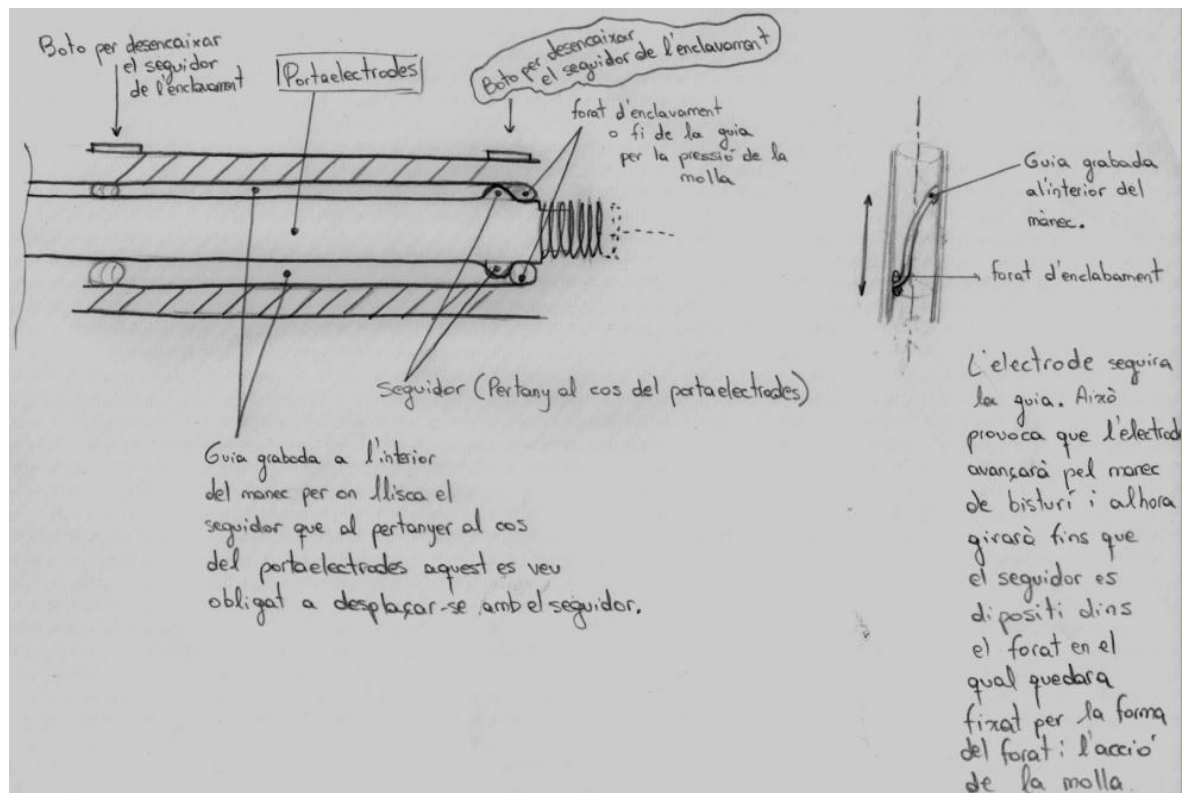 Boto per desencaixar
el seguidor
de l'enclavament
Portaelectrodes
Boto per desencaixar
el seguidor de l'enclavament
forat d'enclavament
o fi de la guia
per la pressió de la
molla
Guia grabada
a l'interior del
mànec.
forat d'enclabament
Seguidor (Pertany al cos del portaelectrodes)
Guia grabada a l'interior
del manec per on llisca el
seguidor que al pertanyer al cos
del portaelectrodes aquest es veu
obligat a desplaçar-se amb el seguidor.
L'electrode seguira
la guia. Això
provoca que l'electrode
avançarà pel manec
de bisturí i alhora
girarà fins que
el seguidor es
dipositi dins
el forat en el
qual quedara
fixat per la forma
del forat i l'acció
de la molla.